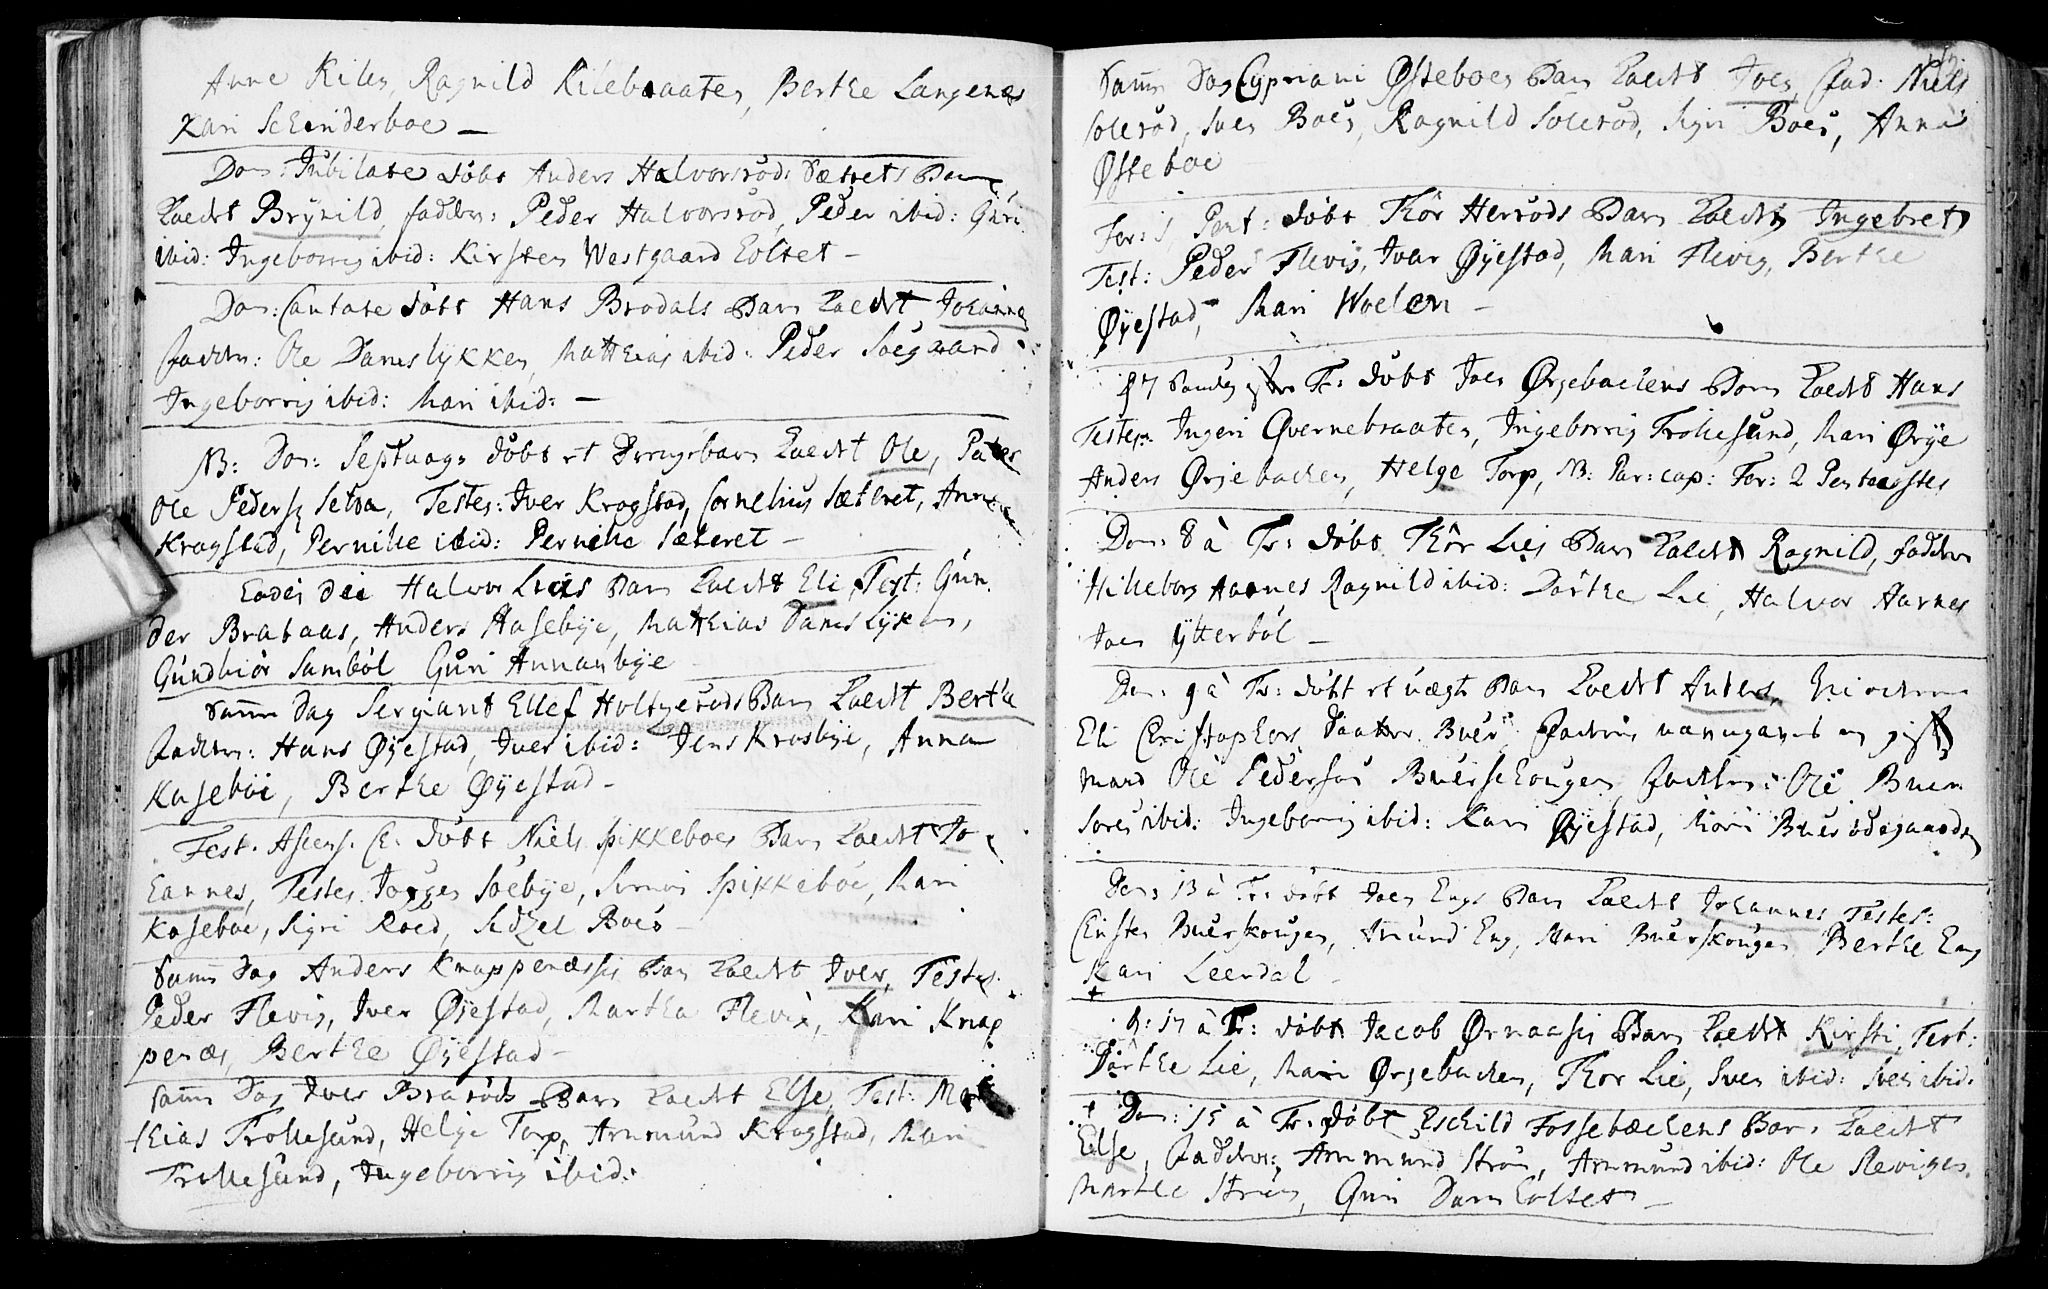 Anne Kilen, Ragnild Kilebraaten, Berthe Langenæs
Kari Schinderboe —
Dom: Jubilate döbt Anders Halvorsröd: Sætrets Barn
kaldet Brÿnild, faddere: Peder Halvorsröd, Peder ibid: Guri
ibid: Ingeborrig ibid: Kirsten Westgaard Holtet —
Dom: Cantate döbt Hans Brodals Barn kaldet Johanne
faddere: Ole Damslykken, Matthias ibid: Peder Soegaard
Ingeborrig ibid: Mari ibid: —
NB: Dom: Septuag: döbt et Drengebarn kaldet Ole, Pater
Ole Peders: Testes: Iver Krogstad, Cornelius Sæteret, Anne
Krogstad, Pernille ibid: Pernille Sæteret —
Eodem die Halvor Lies Barn kaldet Eli, Test: Gun
der Brataas, Anders Hasebÿe, Matthias Damslÿken,
Gundhiör Sambøl Guri Annanbÿe
Samme Dag Sergiant Ellef Holtgerüds Barn kaldet Bertha
faddere: Hans Øÿestad, Iver ibid: Jens Krosbÿe, Anna
Kaseboe, Berthe Øÿestad —
Fest. Ascens. C. döbt Niels Spikkeboes Barn kaldet Jo
hannes, Testes Jörgen Soebÿe, Simon Spikkeboe, Mari
Kaseboe, Sigri Roed, Sidzel Boes —
Samme Dag Anders Knappenæssis Barn kaldet Iver, Testes
Peder Flevig, Iver Øÿestad, Martha Flevig, Kari Knap
penæs, Berthe Øÿestad —
Samme Dag Iver Braröds Barn kaldet Else, Test: Mat
thias Trollesund, Helge Torp, Ammund Krogstad, Mari
Trollesund, Ingeborrig ibid:
Samme Dag Cypriani Østeboes Barn kaldet Joen, fad: Niels
Soleröd, Sven Boes, Ragnild Soleröd, Sigri Boes, Anna
Østeboe
Fer: 1 Pent: döbt Thör Herröds Barn kaldet Ingebret
Test: Peder Flevig, Ivar Øÿestad, Mari Flevig, Berthe
Øÿestad, Mari Woelen —
Tr: döbt Joen Ørgebachens Barn kaldet Hans
Testes: Ingeri Qvernebraaten, Ingeborrig Trollesund, Mari Ørÿe
Anders Ørjebachen, Helge Torp, NB: Par: cap: Fer: 2 Pentecostes
Dom: 8 à Tr: döbt Thör Lies Barn kaldet Ragnild, faddere
Hilleborg Aarnes Ragnild ibid: Dorthe Lie, Halvor Aarnes
Joen Ÿtterböl —
Dom: 9 à Tr: döbt et uægte Barn kaldet Anders,
Eli Christophers Daatter Buer, Faderen
Mand Ole Pedersøn Buerschougen faddere: Ole Buer
Sören ibid: Ingeborrig ibid: Kari Øÿestad, Mari Buer ödegaarden
Dom: 13 à Tr: döbt Joen Engs Barn kaldet Johannes Testes:
Christen Buerskougen, Amund Eng, Mari Buerskougen Berthe Eng
Kari Leerdal —
D: 17 à Tr: döbt Jacob Ørnaasis Barn kaldet Kirsti, Test:
Dorthe Lie, Mari Ørjebachen, Thor Lie, Sven ibid: Sven ibid.
Dom: 15 à Tr: döbt Eschild Fossebæchens Barn kaldet
Else, faddere: Ammund Ström, Ammund ibid: Ole Revigen
Marthe Ström, Guri Damholtet —